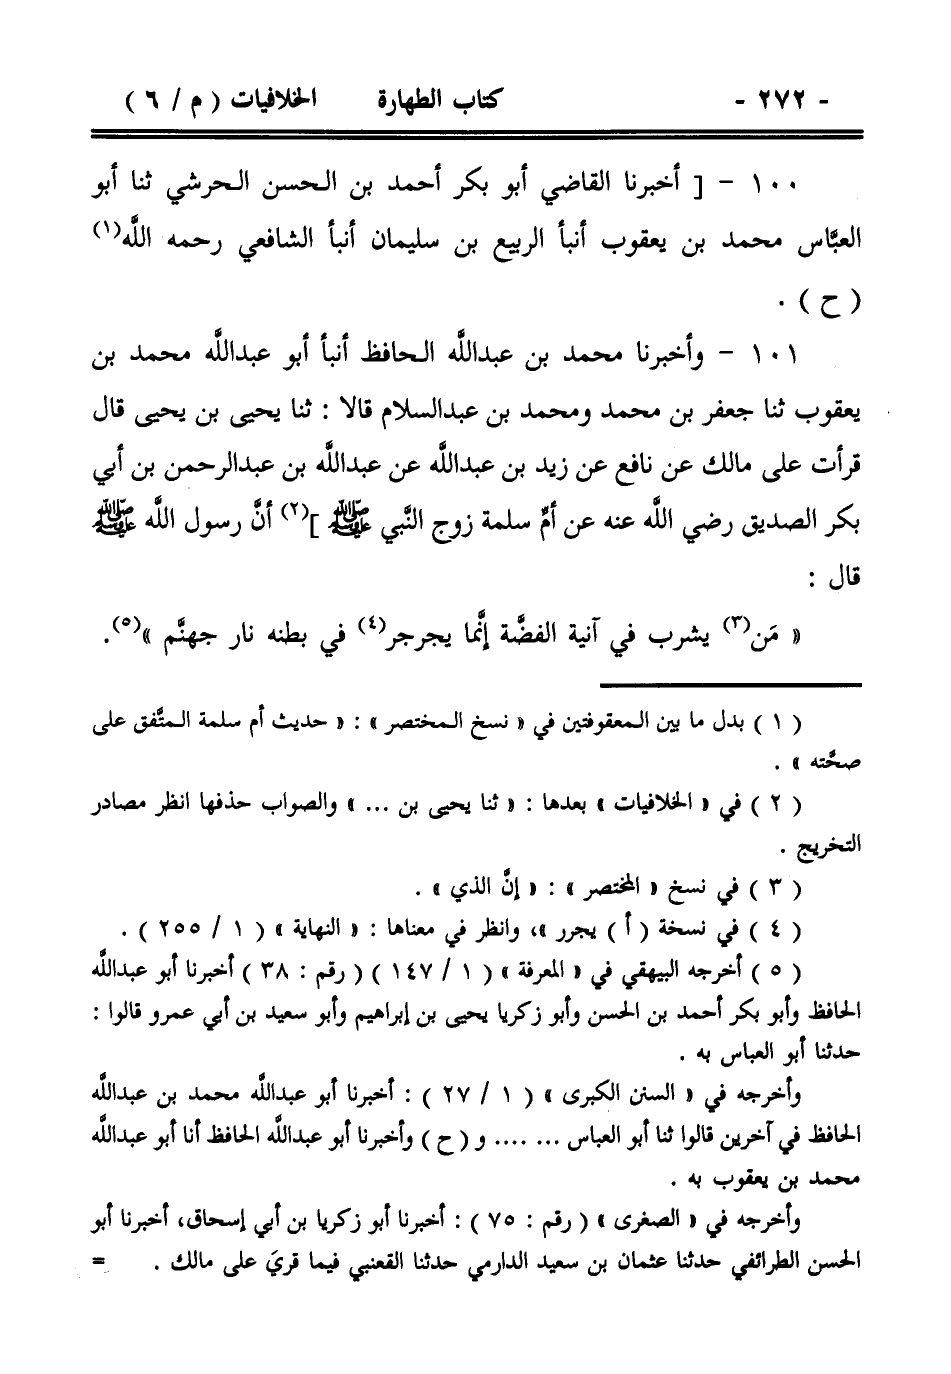 - ٢٧٢ - كتاب الطهارة الخلافيات ( م / ٦ )
١٠٠ - [ أخبرنا القاضي أبو بكر أحمد بن الحسن الحرشي ثنا أبو
العبَّاس محمد بن يعقوب أنبأ الربيع بن سليمان أنبأ الشافعي رحمه اللَّه(١)
( ح ) .
١٠١ - وأخبرنا محمد بن عبداللَّه الحافظ أنبأ أبو عبداللَّه محمد بن
يعقوب ثنا جعفر بن محمد ومحمد بن عبدالسلام قالا : ثنا يحيى بن يحيى قال
قرأت على مالك عن نافع عن زيد بن عبداللَّه عن عبداللَّه بن عبدالرحمن بن أبي
بكر الصديق رضي اللَّه عنه عن أمّ سلمة زوج النَّبي ﷺ ](٢) أنَّ رسول اللَّه ﷺ
قال :
« مَن(٣) يشرب في آنية الفضَّة إنَّما يجرجر(٤) في بطنه نار جهنَّم »(٥).
( ١ ) بدل ما بين المعقوفتين في « نسخ المختصر » : « حديث أم سلمة المتَّفق على
صحَّته » .
( ٢ ) في « الخلافيات » بعدها : « ثنا يحيى بن ... » والصواب حذفها انظر مصادر
التخريج .
( ٣ ) في نسخ « المختصر » : « إنَّ الذي » .
( ٤ ) في نسخة ( أ ) يجرر »، وانظر في معناها : « النهاية » ( ١ / ٢٥٥ ) .
( ٥ ) أخرجه البيهقي في « المعرفة » ( ١ / ١٤٧ ) ( رقم : ٣٨ ) أخبرنا أبو عبداللَّه
الحافظ وأبو بكر أحمد بن الحسن وأبو زكريا يحيى بن إبراهيم وأبو سعيد بن أبي عمرو قالوا :
حدثنا أبو العباس به .
وأخرجه في « السنن الكبرى » ( ١ / ٢٧ ) : أخبرنا أبو عبداللَّه محمد بن عبداللَّه
الحافظ في آخرين قالوا ثنا أبو العباس ... .... و ( ح ) وأخبرنا أبو عبداللَّه الحافظ أنا أبو عبداللَّه
محمد بن يعقوب به .
وأخرجه في « الصغرى » ( رقم : ٧٥ ) : أخبرنا أبو زكريا بن أبي إسحاق، أخبرنا أبو
الحسن الطرائفي حدثنا عثمان بن سعيد الدارمي حدثنا القعنبي فيما قريَ على مالك . =